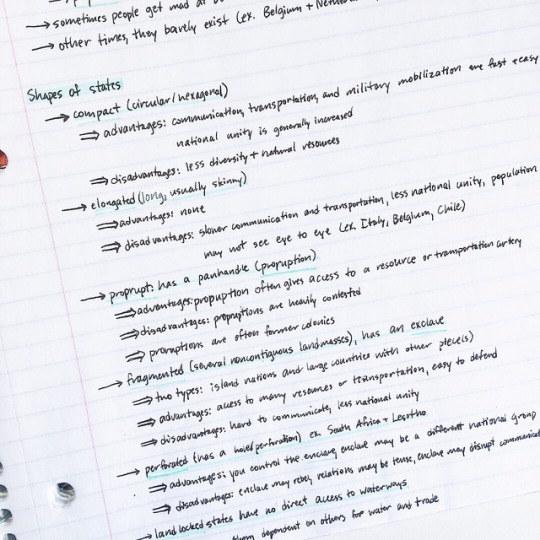 → sometimes people get mad at
→ other times, they barely exist (ex. Belgium +
Shapes of states
→ compact (circular/hexagonal)
⇒ advantages: communication, transportation, and military mobilization are fast + easy
national unity is generally increased
⇒ disadvantages: less diversity + natural resources
→ elongated (long, usually skinny)
⇒ advantages: none
⇒ disadvantages: slower communication and transportation, less national unity, population
may not see eye to eye (ex. Italy, Belgium, Chile)
→ proprupt: has a panhandle (proruption)
⇒ advantages: propuption often gives access to a resource or transportation artery
⇒ disadvantages: propruptions are heavily contested
⇒ proruptions are often former colonies
→ fragmented (several noncontiguous landmasses), has an exclave
⇒ two types: island nations and large countries with other piece(s)
⇒ advantages: acess to many resources or transportation, easy to defend
⇒ disadvantages: hard to communicate, less national unity
→ perforated (has a hole/perforation) ex. South Africa + Lesotho
⇒ advantages: you control the enclave, enclave may be a different national group
⇒ disadvantages: enclave may rebel, relations may be tense, enclave may disrupt
→ land locked states have no direct access to waterways
them dependent on others for water and trade